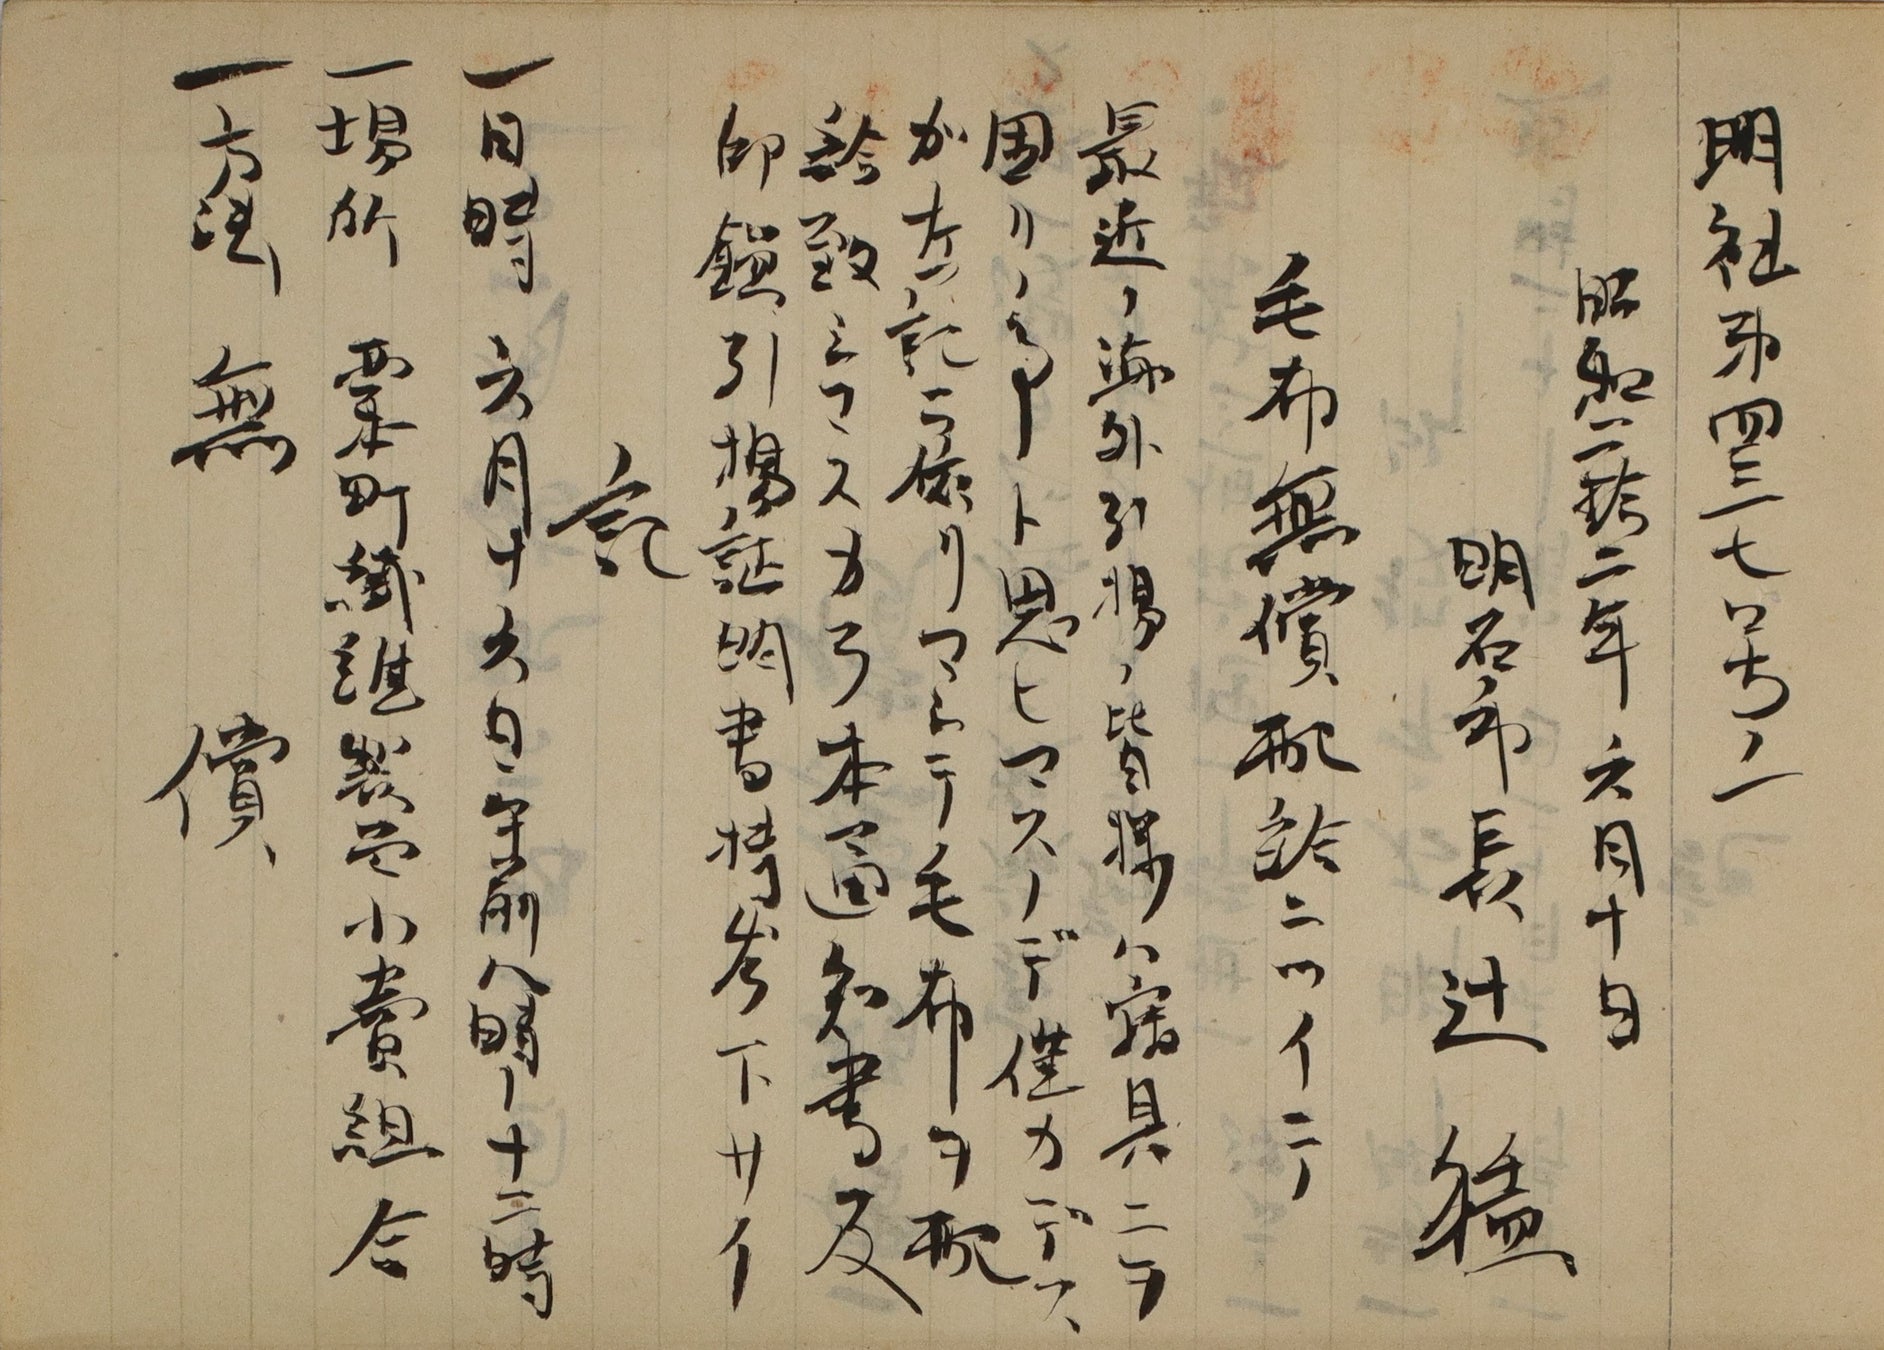 明社第四三七号ノ一
昭和二拾二年六月十日
明石市長辻 猛
毛布無償配給ニツイテ
最近ノ海外引揚ノ皆様ハ寝具ニヲ
困リノ事ト思ヒマスノデ僅カデス
が左ノ記ニ依リマシテ毛布ヲ配
給致シマスカラ本通知書及
印鑑引揚証明書持参下サイ
記
一日時 六月十六日午前八時ノ十二時
一場所 東本町繊維製品小賣組合
一方法 無 償